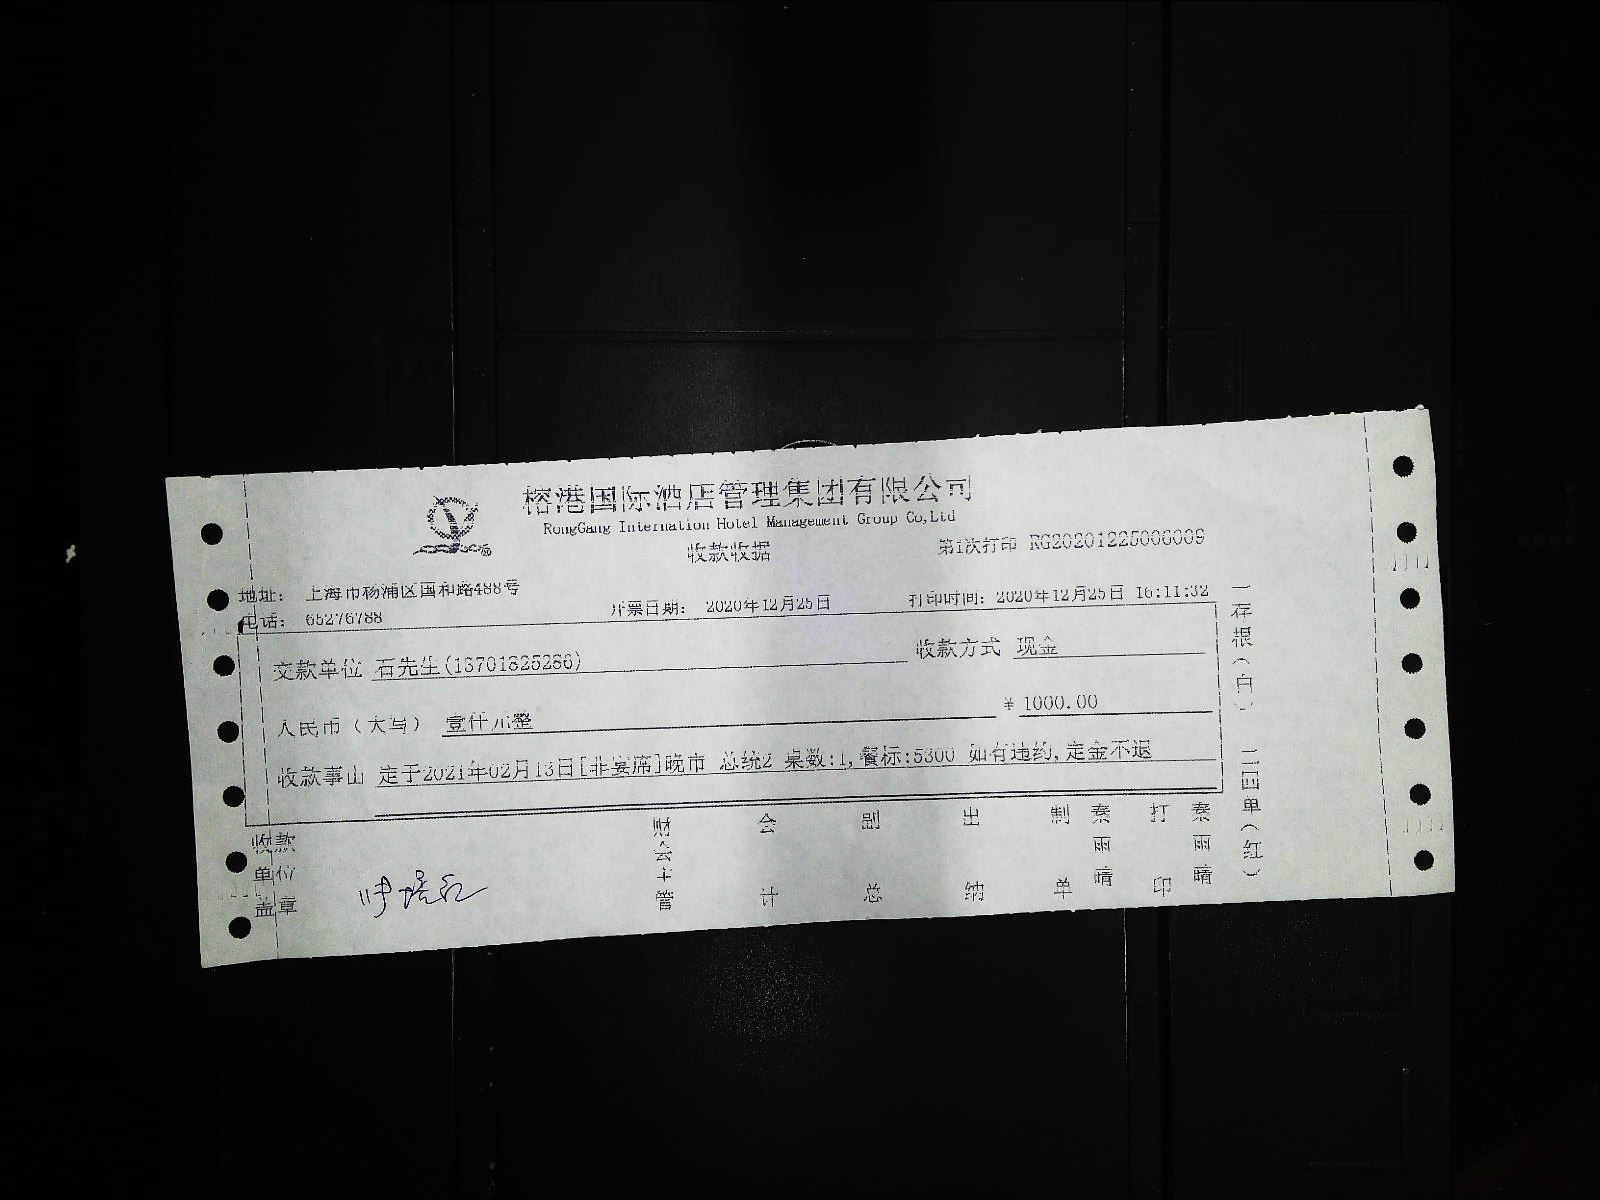 榕港国际酒店管理集团有限公司
RongGang Internation Hotel Management Group Co,Ltd
收款收据
第1次打印 RG20201225000009
地址： 上海市杨浦区国和路488号
电话： 65276788
开票日期： 2020年12月25日
打印时间：2020年12月25日 16:11:32
交款单位 石先生(13701825286)
收款方式 现金
人民币（大写） 壹仟元整
¥ 1000.00
收款事由 定于2021年02月13日[非宴席]晚市 总统2 桌数:1,餐标:5300 如有违约,定金不退
收款单位盖章
财会主管
会计
副总
出纳
制单
秦雨晴
打印
秦雨晴
一存根（白） 二回单（红）